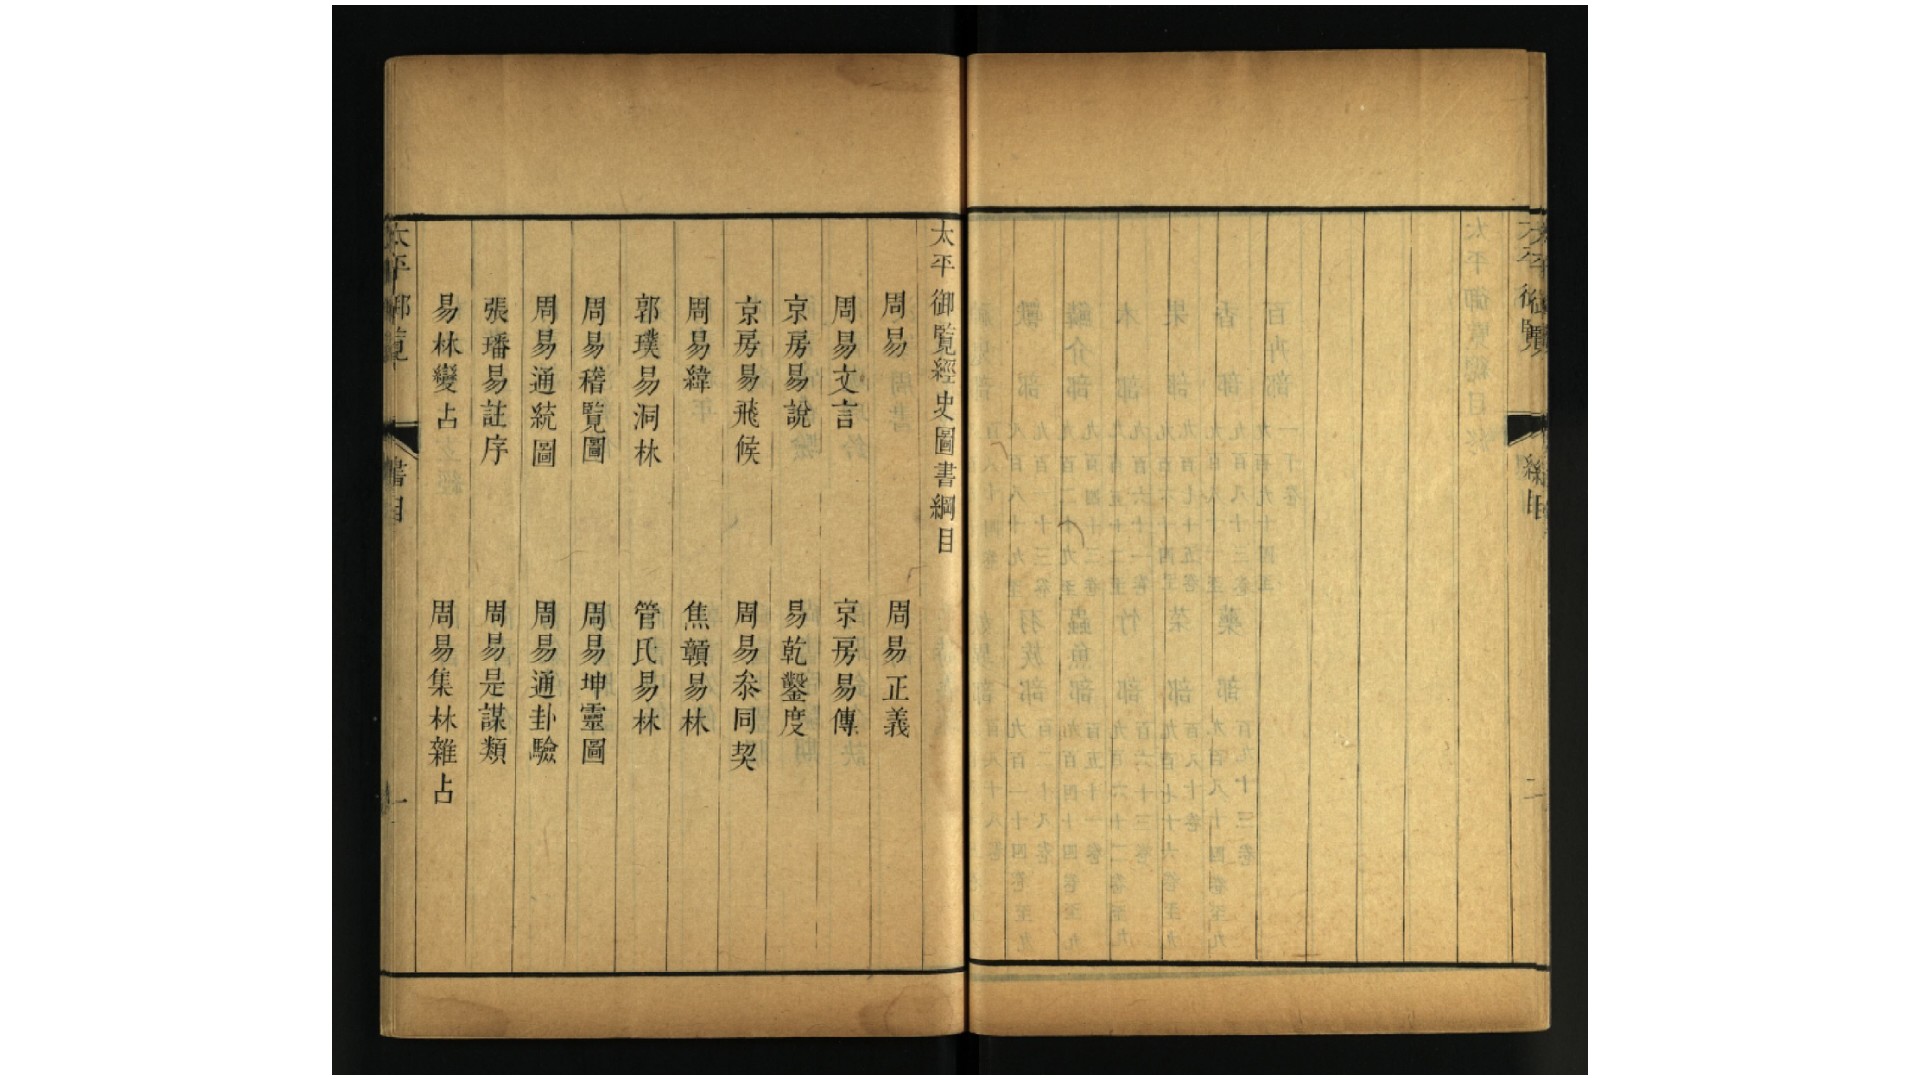 太平御覽
總目
二
太平御覽經史圖書綱目
周易
周易正義
周易文言
京房易傳
京房易說
易乾鑿度
京房易飛候
周易叅同契
周易緯
焦贛易林
郭璞易洞林
管氏易林
周易稽覽圖
周易坤靈圖
周易通統圖
周易通卦驗
張璠易註序
周易是謀類
易林變占
周易集林雜占
太平御覽
書目
一